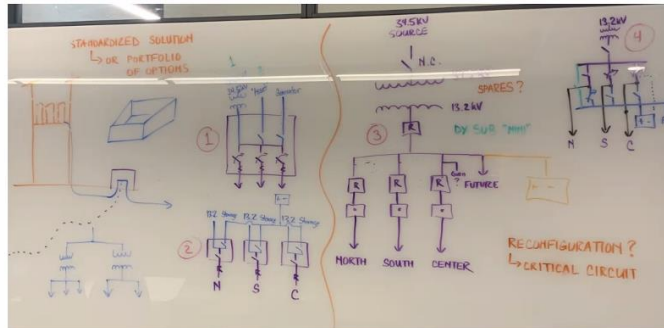 STANDARDIZED SOLUTION
↳ OR PORTFOLIO
OF OPTIONS
1
2
N S C
34.5kV
SOURCE
N.C.
SPARES?
13.2kV
3
R
R R R
FUTURE
NORTH SOUTH CENTER
RECONFIGURATION?
↳ CRITICAL CIRCUIT
13.2kV
4
N S C